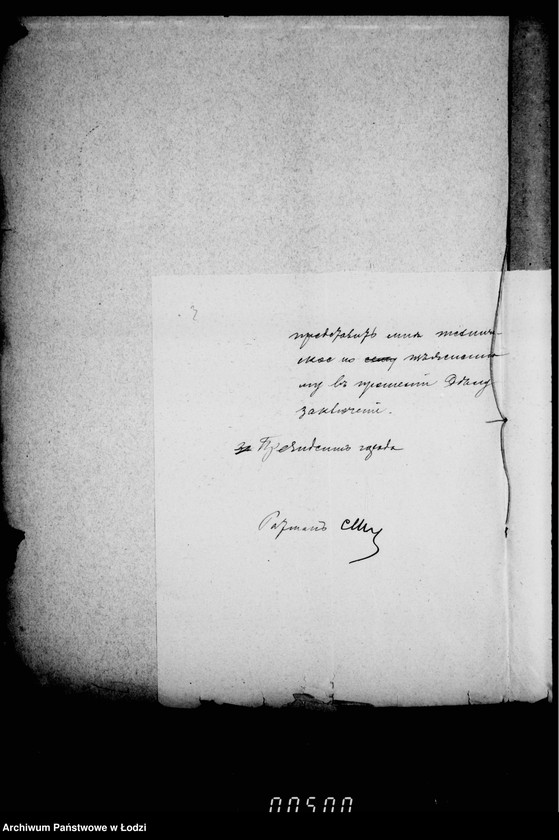 представить мнѣ техниче
ское по сему изъясненно
му въ прошеніи дѣлу
заключеніе.
за Президентъ города
Ратманъ
Archiwum Państwowe w Łodzi